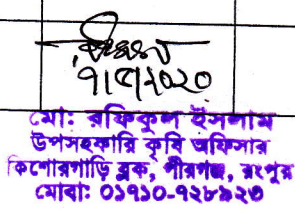 ৭/৫/২০২০
মো: রফিকুল ইসলাম
উপসহকারি কৃষি অফিসার
কিশোরগাড়ি ব্লক, পীরগঞ্জ, রংপুর
মোবা: ০১৭১০-৭২৮৯২৩